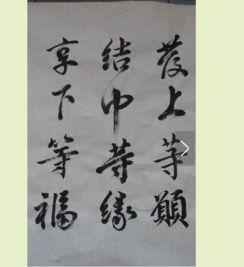 發上等願
结中等缘
享下等福